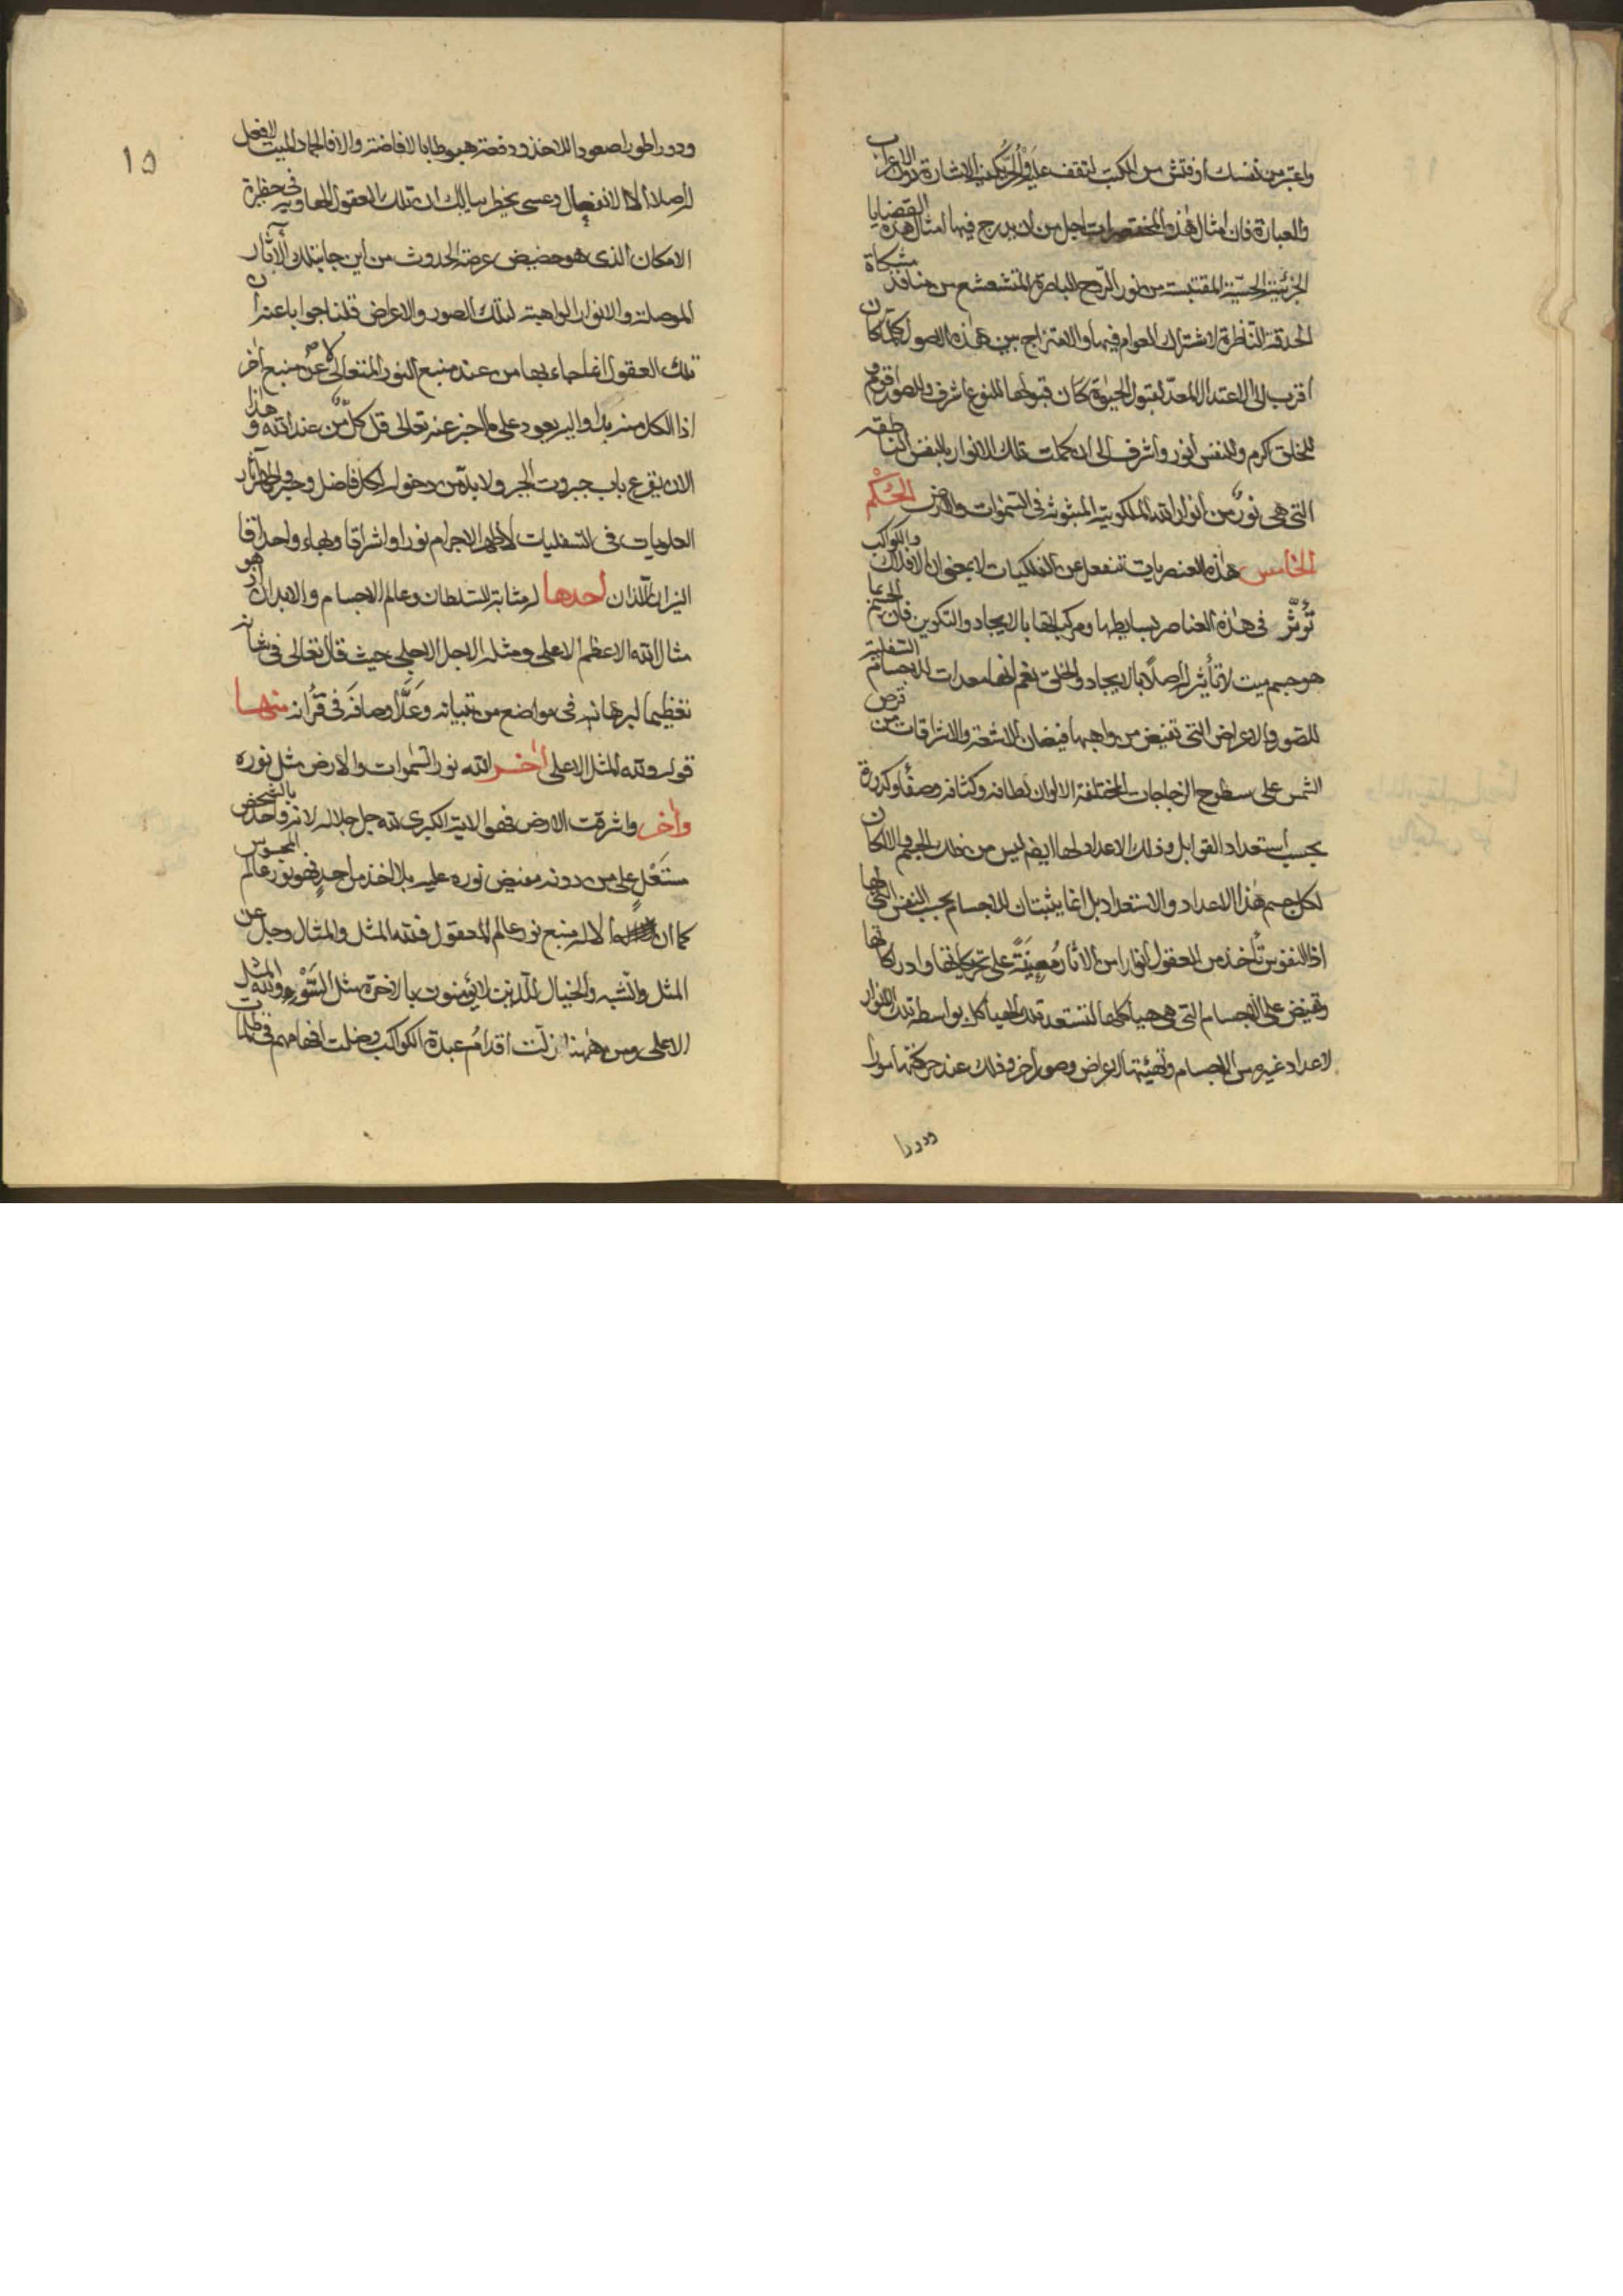 واعتبر من نفسك او فتش من الكتب لتقف عليه والحر يكفيه الاشارة دون الاعراب
والعبارة فان امثال هذه المختصرات اجل من ان يدرج فيها امثال هذه القضايا
الجزئية الحسية المقتبسة من نور الروح الباصرة المتشعشع من منافذ مشكاة
الحدقة الناظرة لاشتراك العوام فيها والامتزاج بين هذه الاصول كلما كان
اقرب الى الاعتدال المعد لقبول الحيوة كان قبولها للنوع اشرف وللصور اقوم و
للخلق اكرم وللنفس انور واشرف الى ان كملت تلك الانوار بالنفس الناطقة
التى هى نور من انوار الله الملكوتية المبثوثة فى السموات والارض الحكم
الخامس هذه العنصريات تنفعل عن الفلكيات لا بمعنى ان الافلاك والكواكب
تؤثر فى هذه العناصر بسايطها ومركباتها بالايجاد والتكوين فان الجسم بما
هو جسم ميت لا تأثير له اصلا بالايجاد والخلق نعم انها معدات للاجسام السفلية
للصور والاعراض التى تفيض من واهبها فيضان الاشعة والاشراقات من قرص
الشمس على سطوح الزجاجات المختلفة الالوان لطافة وكثافة وصفاء وكدرة
بحسب استعداد القوابل وذلك الاعداد لها ايضا ليس من ذلك الجسم والا لكان
لكل جسم هذا الاعداد والاستعداد بل انما يثبتان للاجسام بحسب النفس التى لها
اذ النفوس تأخذ من العقول انوارا من الاثار معينة على تحريكاتها وادراكاتها
وتفيض على الاجسام التى هى هياكلها لتستعد تلك الهياكل بواسطة تلك الانوار
لاعداد غيره من الاجسام وتهيئتها لاعراض وصور اخر وذلك عند حركتها سورا
ودورا
١٥
ودورا طورا صعودا للاخذ ودفعة هبوطا بالافاضة والا فالجماد الميت لا فعل
له اصلا الا الانفعال وعسى يخطر ببالك ان تلك العقول الهاوية فى حظيرة
الامكان الذى هو حضيض عرصة الحدوث من اين جاءت تلك الاثار
الموصلة والانوار الواهبة لتلك الصور والاعراض قلنا جوابا عنه ان
تلك العقول انما جاء بها من عند منبع النور المتعالى لا عن منبع اخر
اذ الكل منه بدا واليه يعود على ما اخبر عنه تعالى قل كل من عند الله و هذا
الان يقرع باب جبروت الجبر ولا بد من دخوله لكل فاضل وحبر واظهر اثار
العلويات فى السفليات لاظهر الاجرام نورا واشراقا وبهاء واحراقا
النيران اللذان احدها له مثابة السلطان وعالم الاجسام والابدان اذ هو
مثال الله الاعظم الاعلى ومثله الاجل الاجلى حيث قال تعالى فى شانه
تعظيما لبرهانه فى مواضع من تبيانه وعد اوصافه فى قرانه منها
قوله ولله المثل الاعلى اخر الله نور السموات والارض مثل نوره
واخر واشرقت الارض فهو الاية الكبرى لله جل جلاله لانه واحد بالشخص
مستعل على من دونه مفيض نوره عليه بلا اخذ من احد فهو نور عالم المحسوس
كما ان لا اله منبع نور عالم المعقول فلله المثل والمثال وجل عن
المثل والشبه والخيال للذين لا يؤمنون بالاخرة مثل السوء ولله المثل
الاعلى ومن ههنا زلت اقدام عبدة الكواكب وضلت افهامهم فى ظلمات